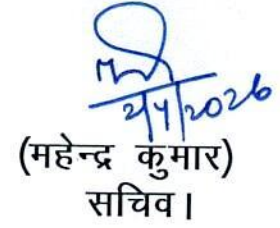 2/4/2026
(महेन्द्र कुमार)
सचिव।